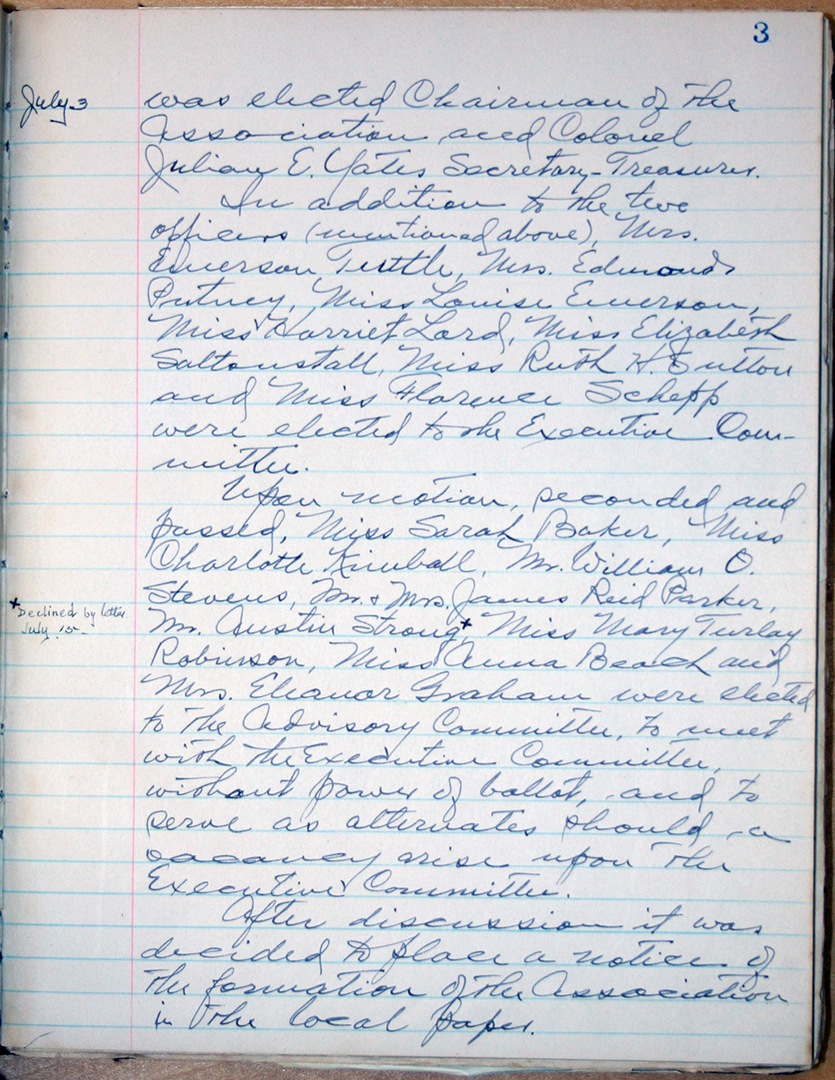 3
July 3
was elected Chairman of the
Association and Colonel
Julian E. Yates Secretary-Treasurer.
In addition to the two
officers (mentioned above), Mrs.
Emerson Tuttle, Mrs. Edmonds
Putney, Miss Louise Emerson,
Miss Harriet Lord, Miss Elizabeth
Saltonstall, Miss Ruth H. Sutton
and Miss Florence Schepp
were elected to the Executive Com-
mittee.
Upon motion, seconded and
passed, Miss Sarah Baker, Miss
Charlotte Kimball, Mr. William O.
Stevens, Mr. & Mrs. James Reid Parker,
+ Declined by letter
July 15-
Mr. Austin Strong+, Miss Mary Turlay
Robinson, Miss Anna Beach and
Mrs. Eleanor Graham were elected
to the Advisory Committee, to meet
with the Executive Committee,
without power of ballot, and to
serve as alternates should a
vacancy arise upon the
Executive Committee.
After discussion it was
decided to place a notice of
the formation of the Association
in the local paper.